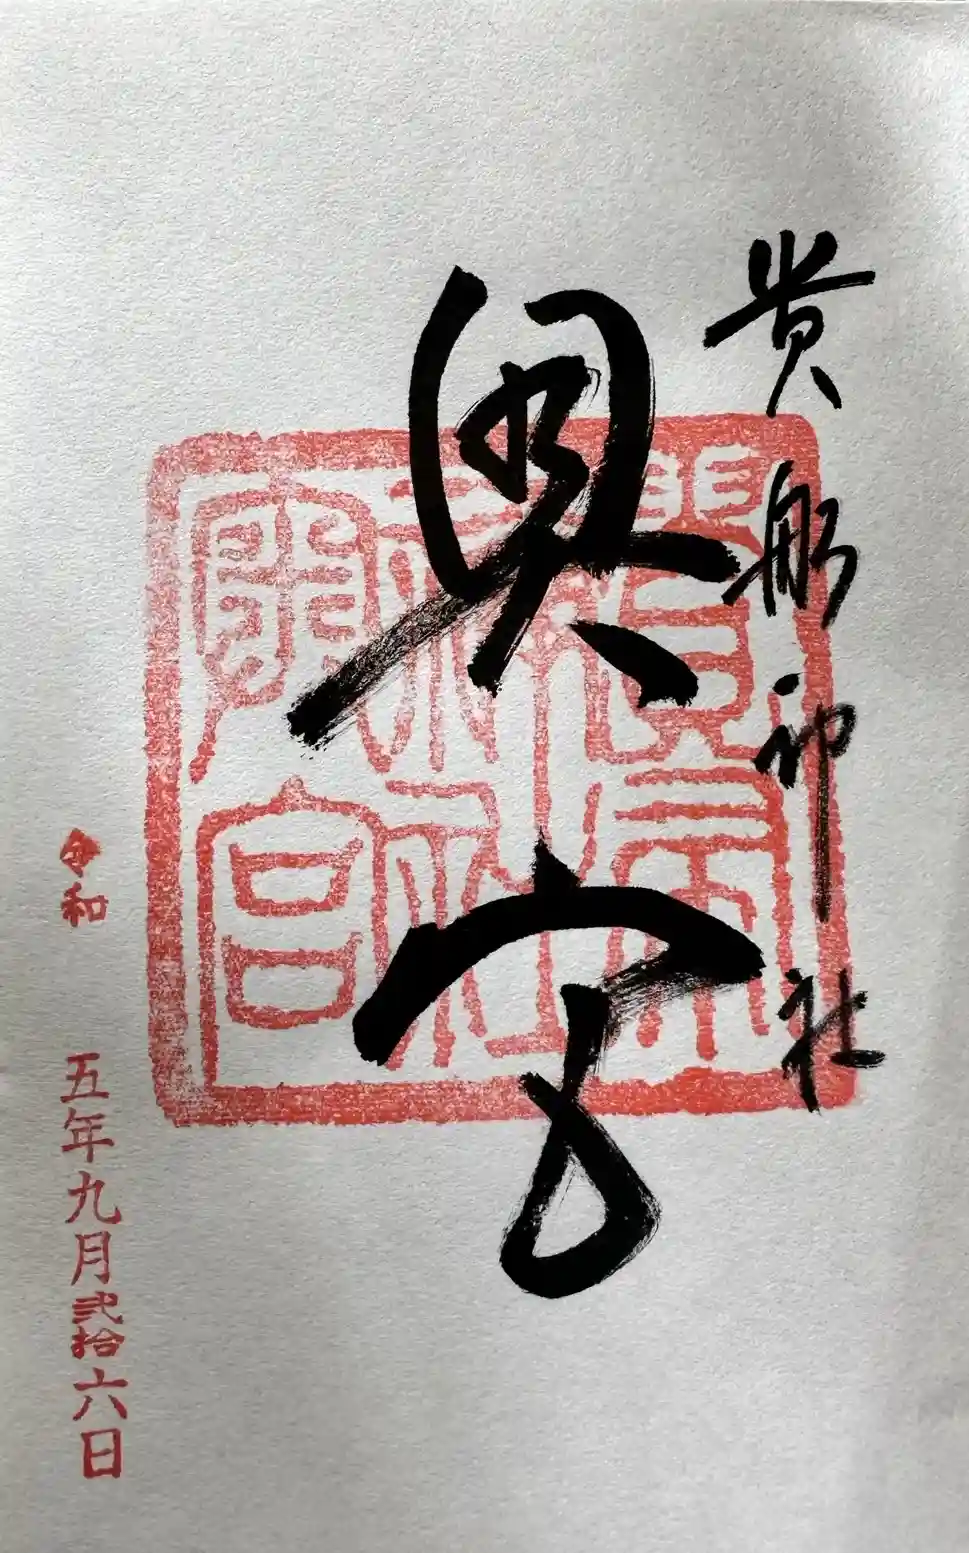 貴船神社
奥宮
令和五年九月弐拾六日